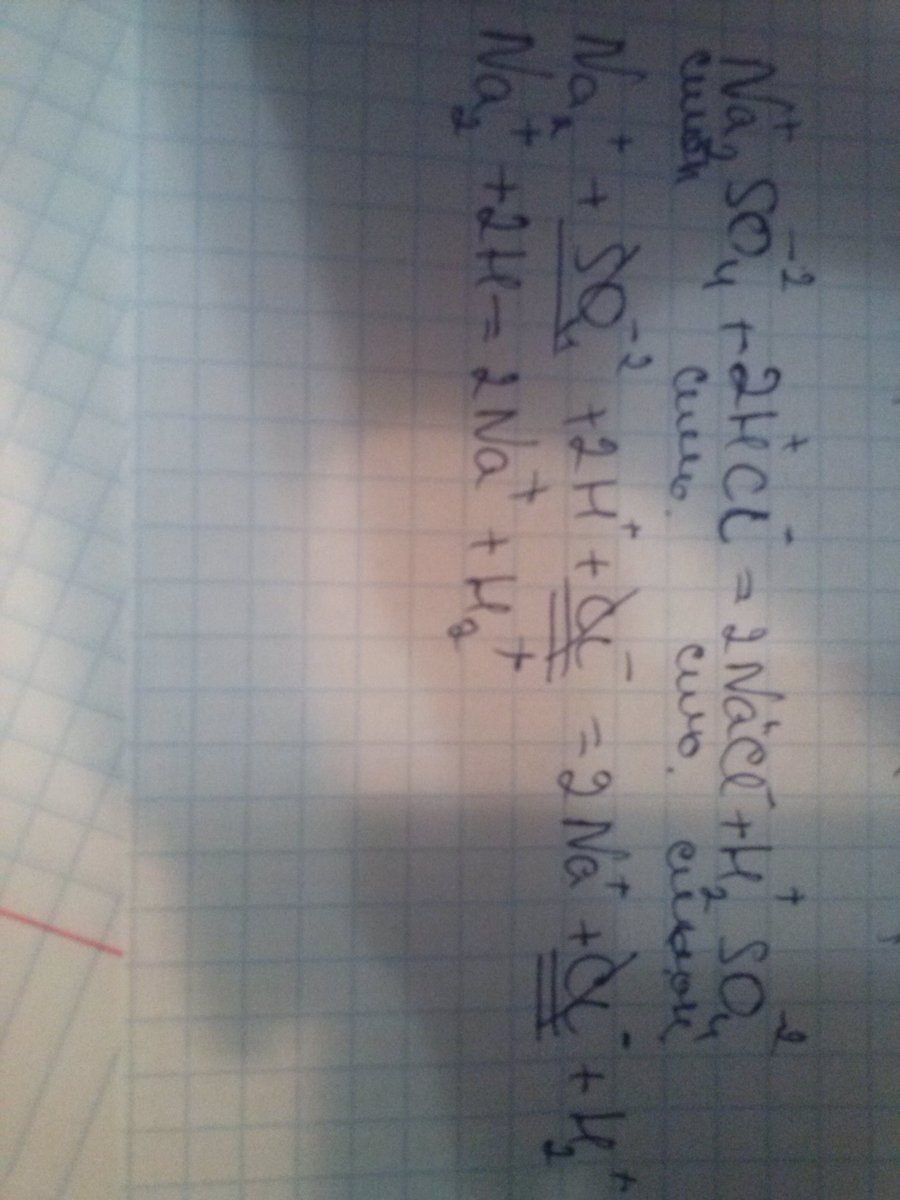 Na₂⁺SO₄⁻² + 2H⁺Cl⁻ = 2Na⁺Cl⁻ + H₂⁺SO₄⁻²
сильн. сильн.
Na₂⁺ + SO₄⁻² + 2H⁺ + Cl⁻ = 2Na⁺ + Cl⁻ + H₂⁺
Na₂⁺ + 2H = 2Na⁺ + H₂⁺